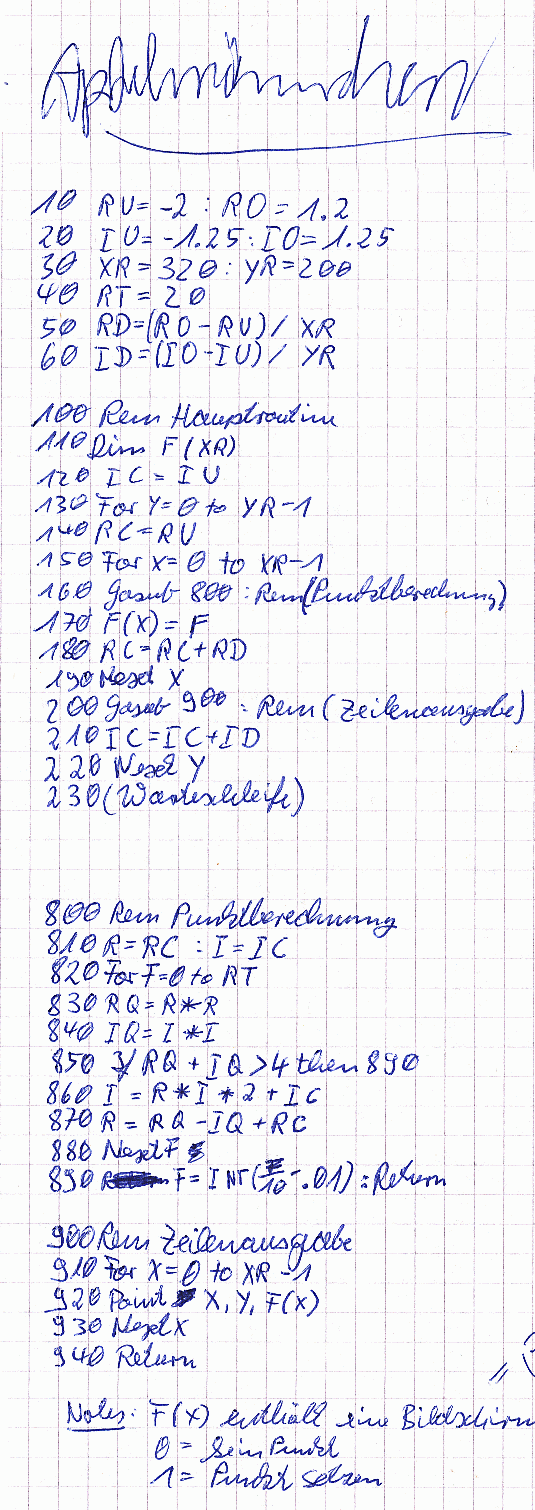 Apfelmännchen
10 RU = -2 : RO = 1.2
20 IU = -1.25 : IO = 1.25
30 XR = 320 : YR = 200
40 RT = 20
50 RD=(RO-RU)/ XR
60 ID=(IO-IU)/ YR
100 Rem Hauptroutine
110 Dim F(XR)
120 IC = IU
130 For Y=0 to YR-1
140 RC=RU
150 For X=0 to XR-1
160 Gosub 800 : Rem(Punktberechnung)
170 F(X) = F
180 RC=RC+RD
190 Next X
200 Gosub 900 : Rem (Zeilenausgabe)
210 IC=IC+ID
220 Next Y
230 (Warteschleife)
800 Rem Punktberechnung
810 R=RC : I=IC
820 For F=0 to RT
830 RQ=R*R
840 IQ=I*I
850 If RQ + IQ >4 then 890
860 I = R*I*2+IC
870 R = RQ-IQ+RC
880 Next F
890 F=INT(F/10-.01) : Return
900 Rem Zeilenausgabe
910 For X=0 to XR-1
920 Point X, Y, F(X)
930 Next X
940 Return
Notes: F(X) enthält eine Bildschirm
0 = kein Punkt
1 = Punkt setzen